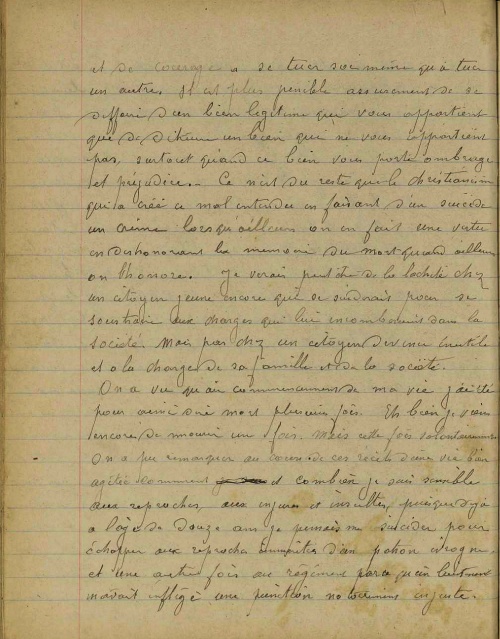 et de courage à se tuer soi même qu'à tuer
un autre. Il est plus penible assurement de se
deffaire d'un bien legitime qui vous appartient
que de détruire un bien qui ne vous appartient
pas, surtout quand ce bien vous porte ombrage
et préjudice. Ce n'est du reste que le christianisme
qui a créé ce mal entendu en faisant du suicide
un crime lorsqu'ailleurs on en fait une vertu
en deshonorant la memoire du mort quand ailleurs
on l'honore. Je verais peut être de la lacheté chez
un citoyen jeune encore qui se suiderait pour se
soustraire aux charges qui lui incomberaient dans la
société. Mais pas chez un citoyen devenu inutile
et a la charge de sa famille et de la société.
On a vu qu'au commencement de ma vie j'ai été
pour ainsi dire mort plusieurs fois. Eh bien je viens
encore de mourir une fois. mais cette fois volontairement
On a pu remarquer au cours de ces récits d'une vie bien
agitée comment et combien je suis sensible
aux reproches, aux injures et insultes, puisque déjà
a l'age de douze ans je pensais me suicider pour
échapper aux reproches d'un patron ivrogne
et une autre fois au régiment parce qu'un lieutenant
m'avait infligé une punition injuste.